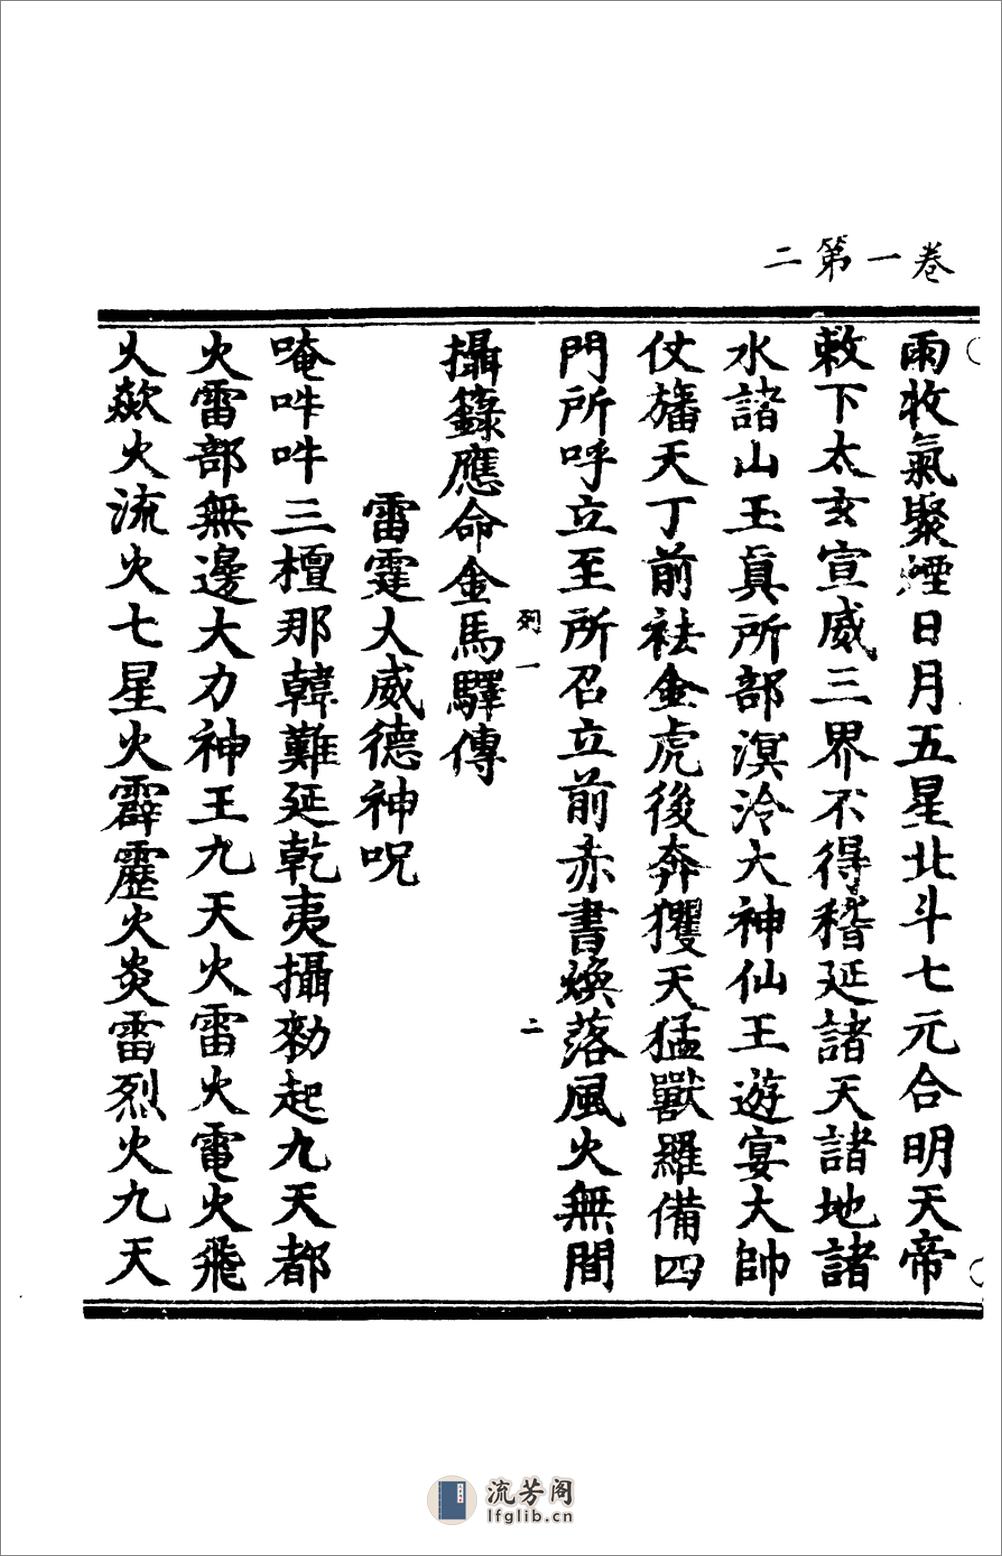 卷一第二
雨收氣聚煙日月五星北斗七元合明天帝
敕下太玄宣威三界不得稽延諸天諸地諸
水諸山玉真所部溟泠大神仙王遊宴大帥
仗旛天丁前祛金虎後奔玃天猛獸羅備四
門所呼立至所召立前赤書煥落風火無間
列一 二
攝籙應命金馬驛傳
雷霆人威德神呪
唵吽吽三檀那韓難延乾夷攝勑起九天都
火雷部無邊大力神王九天火雷火電火飛
火歘火流火七星火霹靂火炎雷烈火九天
流芳阁
lfglib.cn